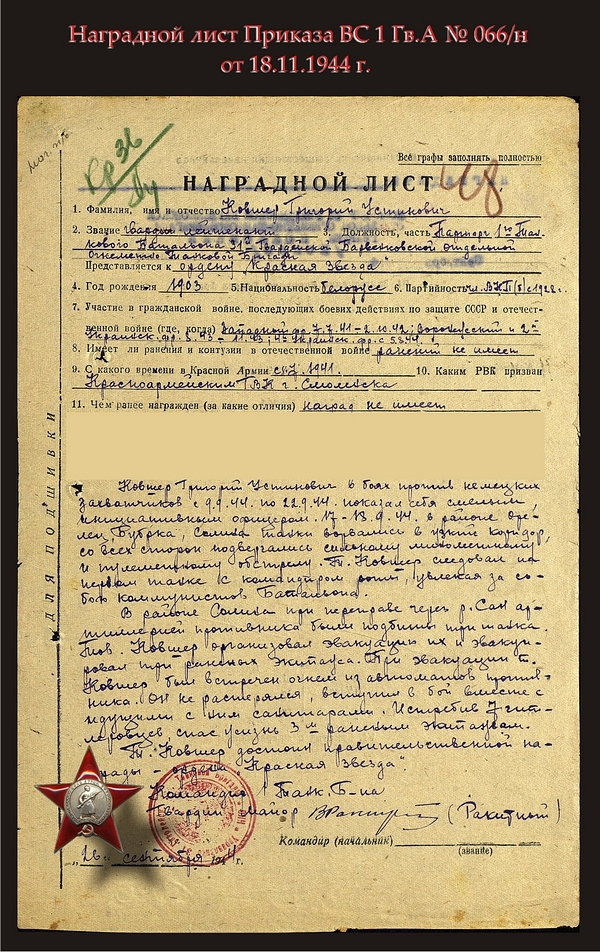 Наградной лист Приказа ВС 1 Гв.А № 066/н
от 18.11.1944 г.
Все графы заполнять полностью
НАГРАДНОЙ ЛИСТ
1. Фамилия, имя и отчество Ковшер Григорий Устинович
2. Звание Гвардии лейтенант 3. Должность, часть Парторг 1го Тан-
кового Батальона 31й Гвардейской Барвенковской отдельной
Танковой Бригады
Представляется к ордену "Красная Звезда"
4. Год рождения 1903 5. Национальность белорусс 6. Партийность ч. ВКП(б) с 1928г.
7. Участие в гражданской войне, последующих боевых действиях по защите СССР и отечест-
венной войне (где, когда) Западной фр. 7.7.41-2.10.42; Воронежский и 2й
Украинск. фр. 8.43 - 11.43; 4й Украинск. фр. с
8. Имеет ли ранения и контузии в отечественной войне ранений не имеет
9. С какого времени в Красной Армии с 7.1941. 10. Каким РВК призван
Красноармейским ГВК г. Смоленска
11. Чем ранее награжден (за какие отличия) наград не имеет
ДЛЯ ПОДШИВКИ
Ковшер Григорий Устинович в боях против немецких
захватчиков с 9.9.44. по 22.9.44. показал себя смелым,
инициативным офицером. 17-18.9.44. в районе
Солина танки ворвались в узкий коридор,
со всех сторон подвергались сильному минометному
и пулеметному обстрелу. Т. Ковшер следовал на
первом танке с командиром роты, увлекая за со-
бою коммунистов Батальона.
В районе Солина при переправе через р. Сан ар-
тиллерией противника были подбиты три танка
Тов. Ковшер организовал эвакуацию их и эвакуи-
ровал три раненых экипажа. При эвакуации т.
Ковшер был встречен огнем из автоматов против-
ника. Он не растерялся, вступил в бой вместе с
идущими с ним санитарами. Истребив 7 гит-
леровцев, спас жизнь 3м раненым экипажам.
Т. Ковшер достоин правительственной на-
грады - ордена "Красная Звезда".
Командир 1 Танк. Б-на
Гвардии майор (Ракитный)
Командир (начальник)
(звание)
"26" сентября 1944г.